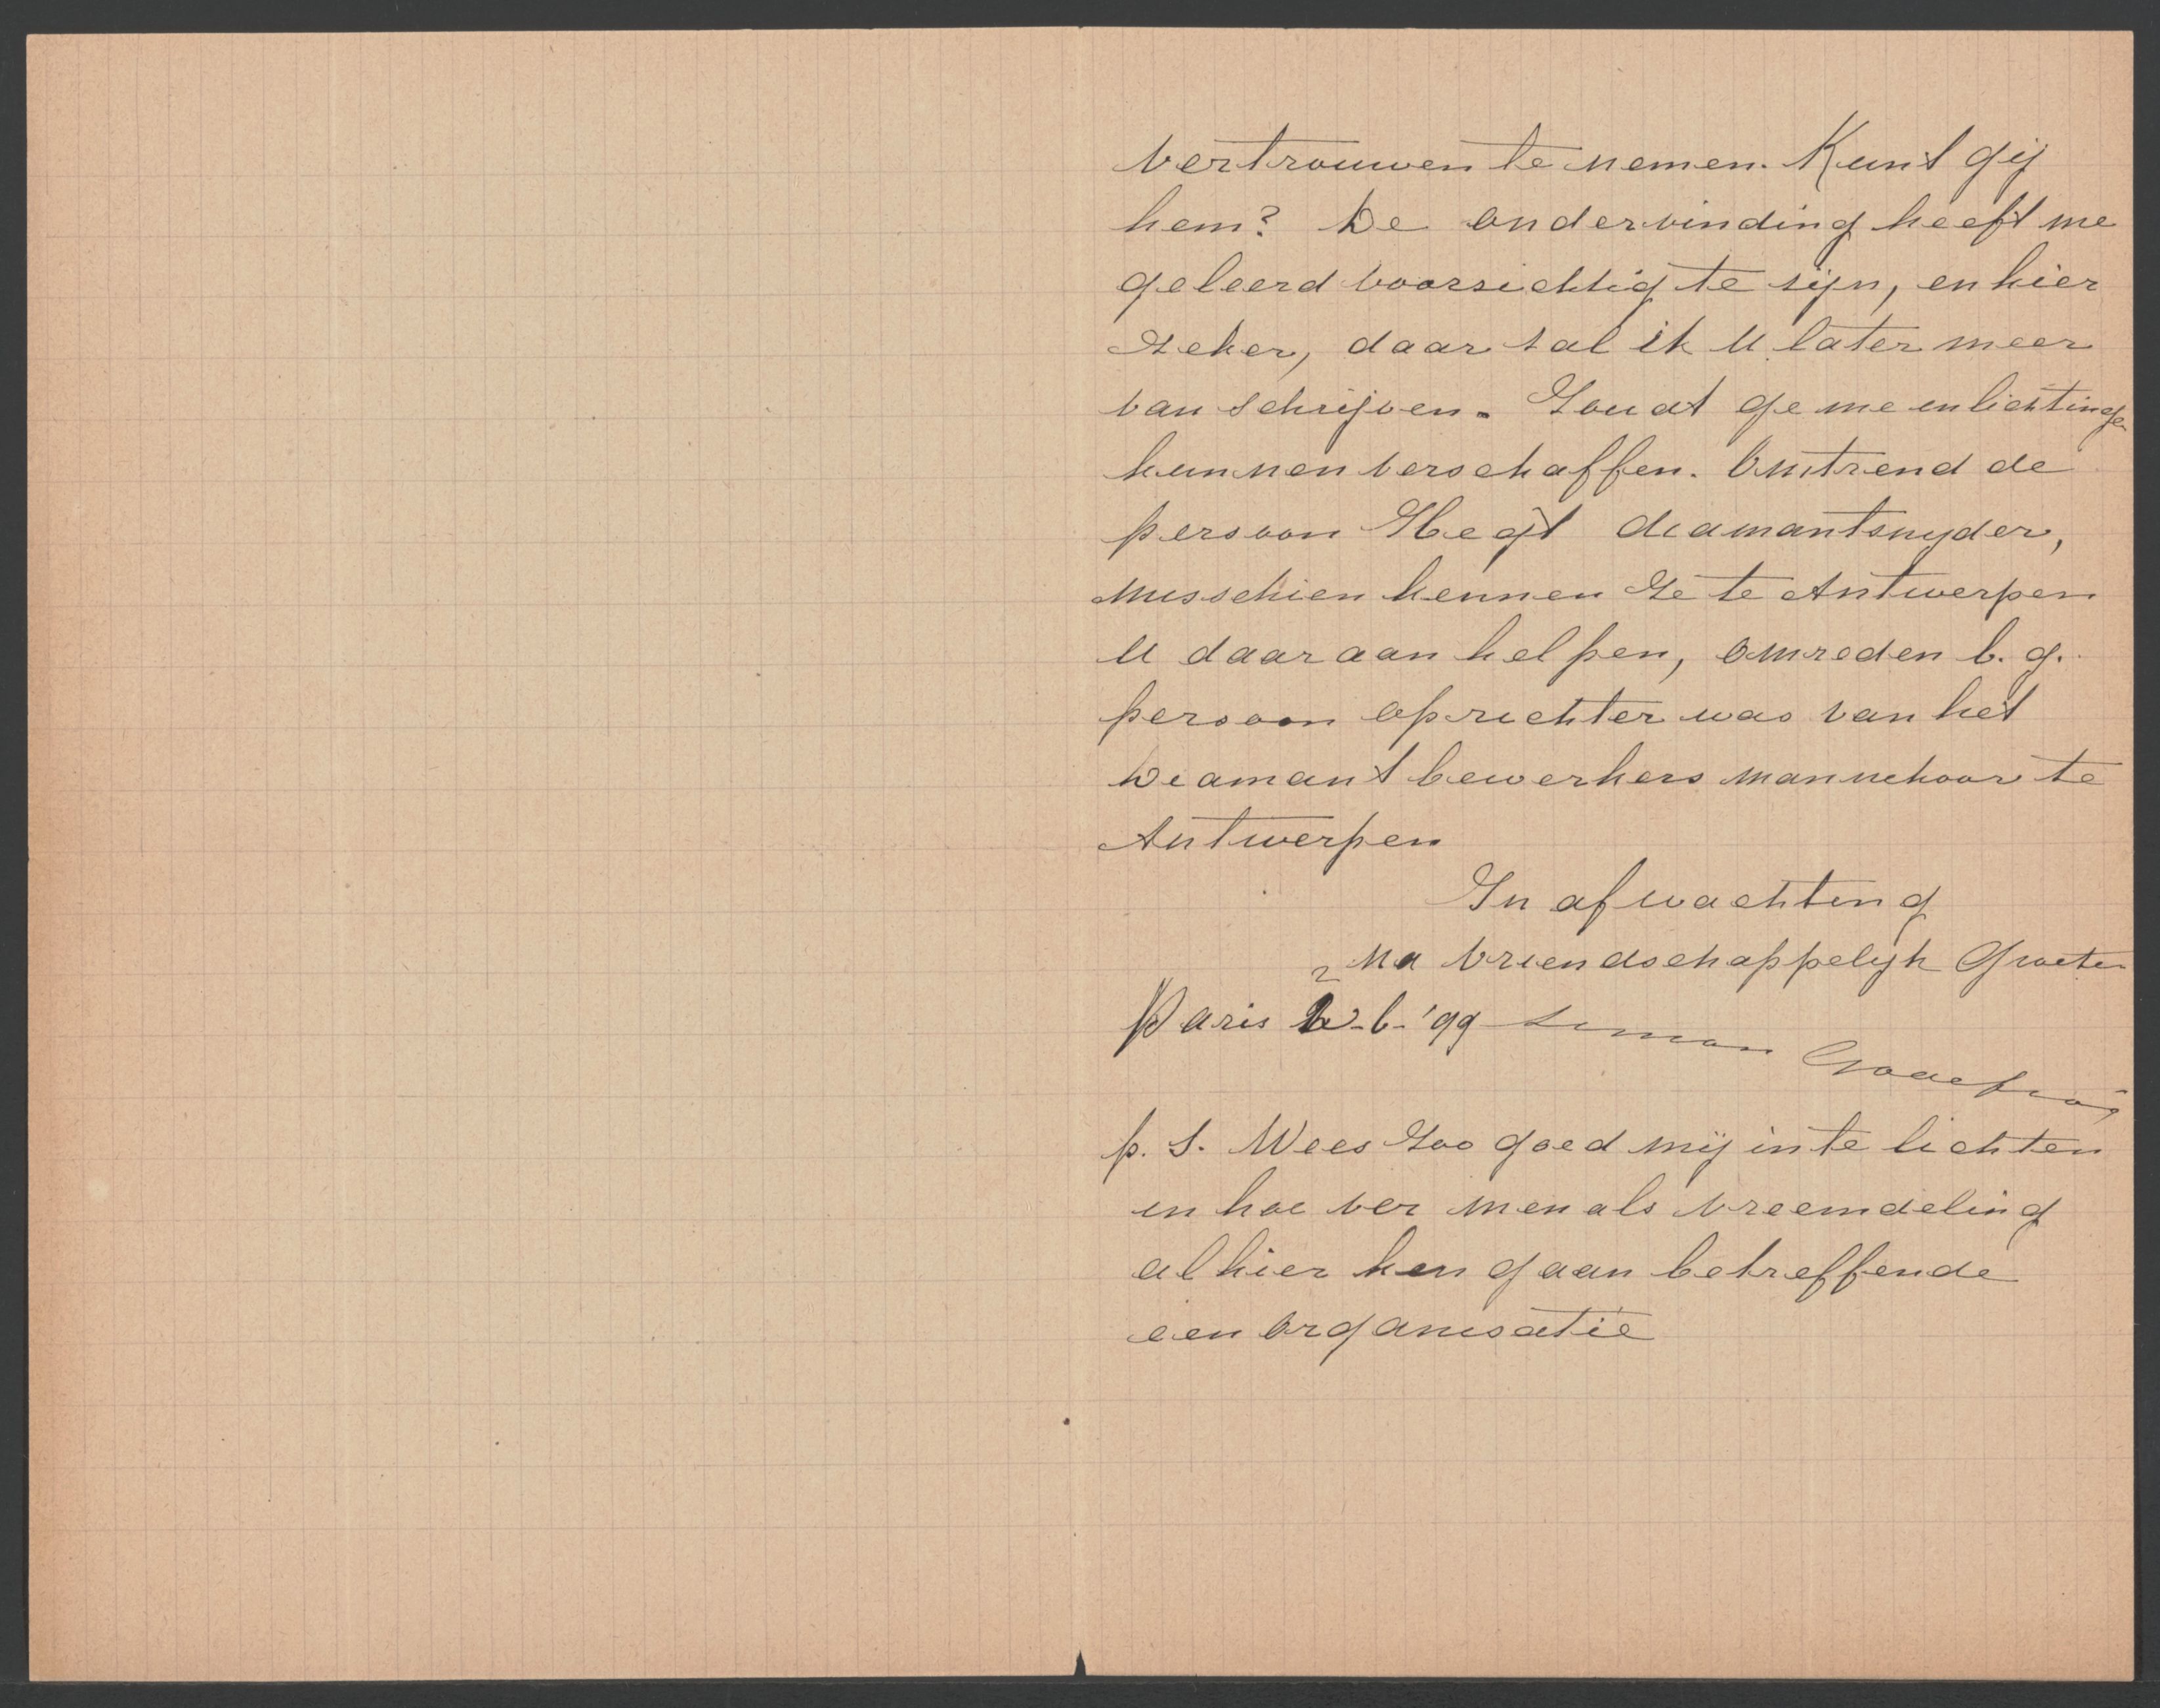 vertrouwen te nemen. Kunt gij
hem? De ondervinding heeft me
geleerd voorzichtig te zijn, en hier
zeker, daar zal ik U later meer
van schrijven. Zoudt ge me inlichtingen
kunnen verschaffen. Omtrend de
persoon Hegt diamantsnyder,
misschien kennen ze te Antwerpen
U daar aan helpen, omreden b. g.
persoon oprichter was van het
Diamantbewerkers mannekoor te
Antwerpen
In afwachting
na vriendschappelijk Groeten
Paris 2-6-'99 Simon
p. S. Wees zoo goed mij in te lichten
in hoe ver men als vreemdeling
alhier ken gaan betreffende
een organisatie